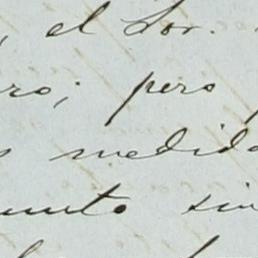 , el Sor.
ro; pero
s medida
unto sin